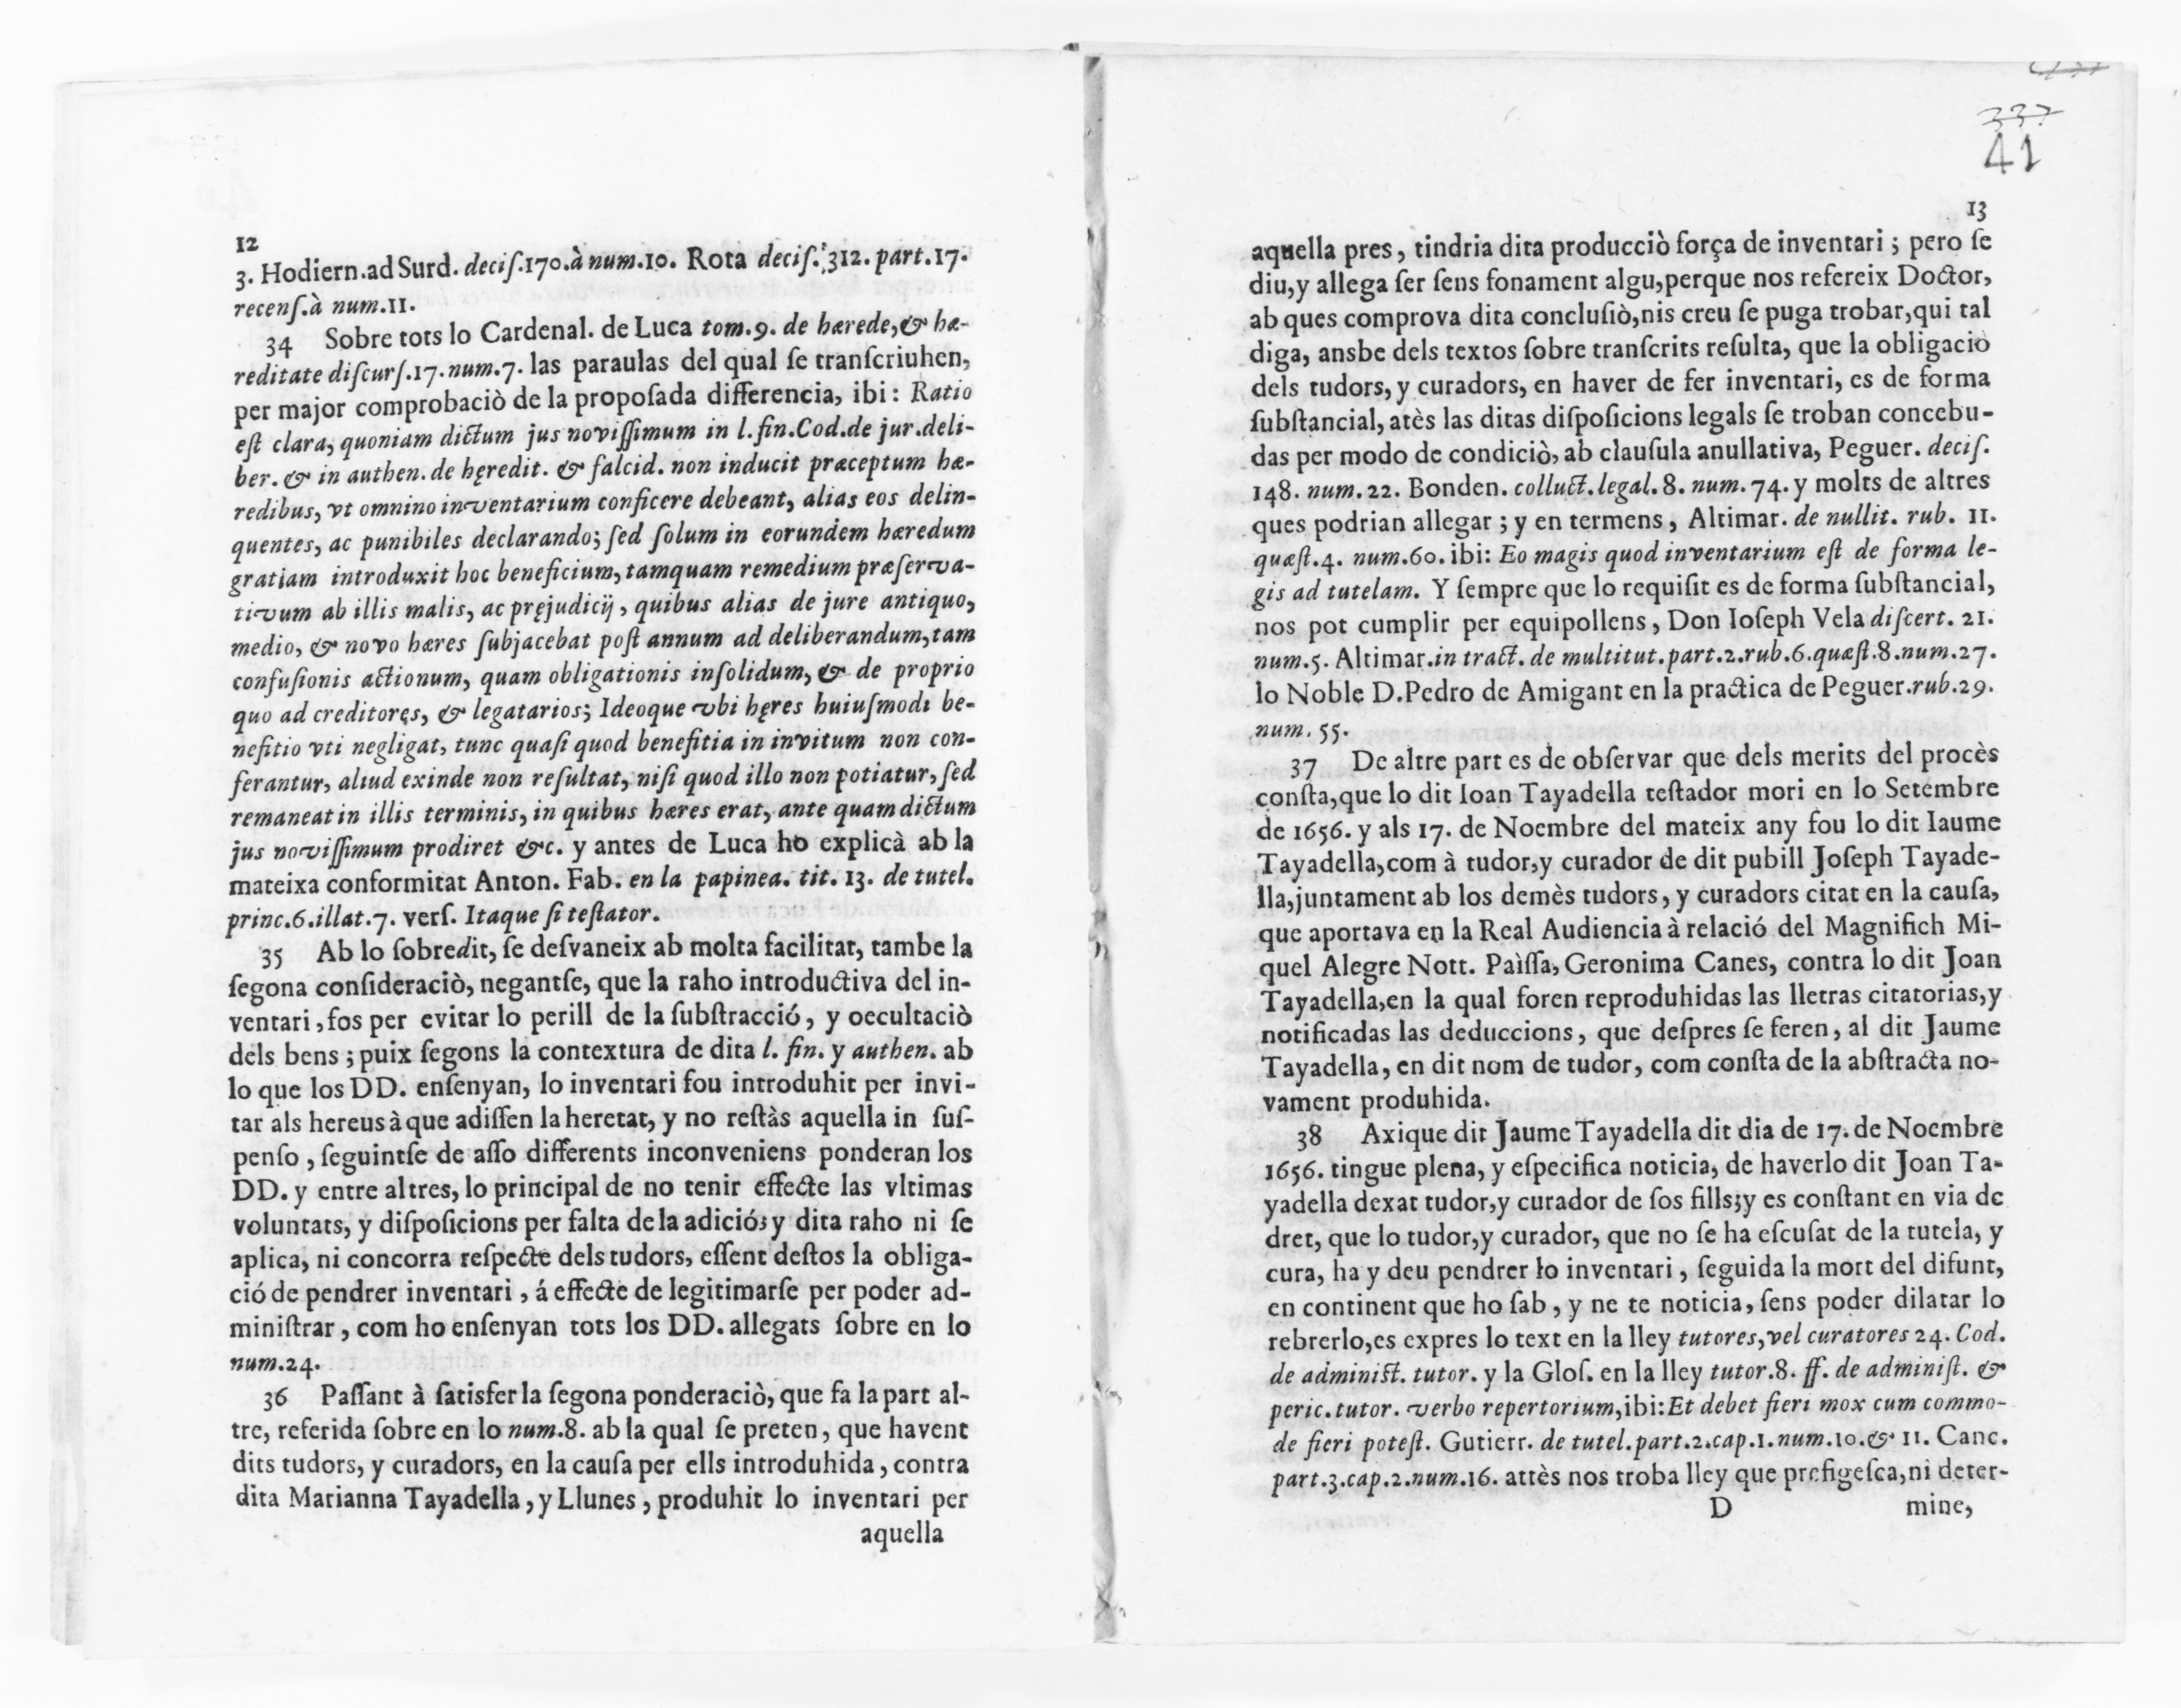 12
3. Hodiern.ad Surd. deciſ.170.à num.10. Rota deciſ.312.part.17.
recenſ.à num.11.
34 Sobre tots lo Cardenal. de Luca tom.9. de hærede,& hæ-
reditate diſcurſ.17.num.7. las paraulas del qual ſe tranſcriuhen,
per major comprobaciò de la propoſada differencia, ibi: Ratio
eſt clara, quoniam dictum jus noviſſimum in l.fin.Cod.de jur.deli-
ber. & in authen. de hęredit. & falcid. non inducit præceptum hæ-
redibus, vt omnino inventarium conficere debeant, alias eos delin-
quentes, ac punibiles declarando; ſed ſolum in eorundem hæredum
gratiam introduxit hoc beneficium, tamquam remedium præſerva-
tivum ab illis malis, ac pręjudicij, quibus alias de jure antiquo,
medio, & novo hæres ſubjacebat poſt annum ad deliberandum, tam
confuſionis actionum, quam obligationis inſolidum, & de proprio
quo ad creditoręs, & legatarios; Ideoque vbi hęres huiuſmodi be-
nefitio vti negligat, tunc quaſi quod benefitia in invitum non con-
ferantur, aliud exinde non reſultat, niſi quod illo non potiatur, ſed
remaneat in illis terminis, in quibus hæres erat, ante quam dictum
jus noviſſimum prodiret &c. y antes de Luca ho explicà ab la
mateixa conformitat Anton. Fab. en la papinea. tit. 13. de tutel.
princ.6.illat.7. verſ. Itaque ſi teſtator.
35 Ab lo ſobredit, ſe deſvaneix ab molta facilitat, tambe la
ſegona conſideraciò, negantſe, que la raho introductiva del in-
ventari, fos per evitar lo perill de la ſubſtracció, y occultaciò
dels bens; puix ſegons la contextura de dita l. fin. y authen. ab
lo que los DD. enſenyan, lo inventari fou introduhit per invi-
tar als hereus à que adiſſen la heretat, y no reſtàs aquella in ſuſ-
penſo, ſeguintſe de aſſo differents inconveniens ponderan los
DD. y entre altres, lo principal de no tenir effecte las vltimas
voluntats, y diſpoſicions per falta de la adició; y dita raho ni ſe
aplica, ni concorra reſpecte dels tudors, eſſent deſtos la obliga-
ció de pendrer inventari, á effecte de legitimarſe per poder ad-
miniſtrar, com ho enſenyan tots los DD. allegats ſobre en lo
num.24.
36 Paſſant à ſatisfer la ſegona ponderaciò, que fa la part al-
tre, referida ſobre en lo num.8. ab la qual ſe preten, que havent
dits tudors, y curadors, en la cauſa per ells introduhida, contra
dita Marianna Tayadella, y Llunes, produhit lo inventari per
aquella
41
13
aquella pres, tindria dita producciò força de inventari; pero ſe
diu, y allega ſer ſens fonament algu, perque nos refereix Doctor,
ab ques comprova dita concluſiò, nis creu ſe puga trobar, qui tal
diga, ansbe dels textos ſobre tranſcrits reſulta, que la obligaciò
dels tudors, y curadors, en haver de fer inventari, es de forma
ſubſtancial, atès las ditas diſpoſicions legals ſe troban concebu-
das per modo de condiciò, ab clauſula anullativa, Peguer. deciſ.
148. num. 22. Bonden. colluct.legal.8. num.74. y molts de altres
ques podrian allegar; y en termens, Altimar. de nullit. rub. 11.
quæſt.4. num.60. ibi: Eo magis quod inventarium eſt de forma le-
gis ad tutelam. Y ſempre que lo requiſit es de forma ſubſtancial,
nos pot cumplir per equipollens, Don Ioſeph Vela diſcert. 21.
num.5. Altimar.in tract. de multitut.part.2.rub.6.quæſt.8.num.27.
lo Noble D.Pedro de Amigant en la practica de Peguer.rub.29.
num. 55.
37 De altre part es de obſervar que dels merits del procès
conſta, que lo dit Ioan Tayadella teſtador mori en lo Setembre
de 1656. y als 17. de Noembre del mateix any fou lo dit Iaume
Tayadella, com à tudor, y curador de dit pubill Joſeph Tayade-
lla, juntament ab los demès tudors, y curadors citat en la cauſa,
que aportava en la Real Audiencia à relació del Magnifich Mi-
quel Alegre Nott. Paìſſa, Geronima Canes, contra lo dit Joan
Tayadella, en la qual foren reproduhidas las lletras citatorias, y
notificadas las deduccions, que deſpres ſe feren, al dit Jaume
Tayadella, en dit nom de tudor, com conſta de la abſtracta no-
vament produhida.
38 Axique dit Jaume Tayadella dit dia de 17. de Noembre
1656. tingue plena, y eſpecifica noticia, de haverlo dit Joan Ta-
yadella dexat tudor, y curador de ſos fills; y es conſtant en via de
dret, que lo tudor, y curador, que no ſe ha eſcuſat de la tutela, y
cura, ha y deu pendrer lo inventari, ſeguida la mort del difunt,
en continent que ho ſab, y ne te noticia, ſens poder dilatar lo
rebrerlo, es expres lo text en la lley tutores, vel curatores 24. Cod.
de adminiſt. tutor. y la Gloſ. en la lley tutor.8. ff. de adminiſt. &
peric.tutor. verbo repertorium, ibi: Et debet fieri mox cum commo-
de fieri poteſt. Gutierr. de tutel.part.2.cap.1.num.10.& 11. Canc.
part.3.cap.2.num.16. attès nos troba lley que prefigeſca, ni deter-
D mine,